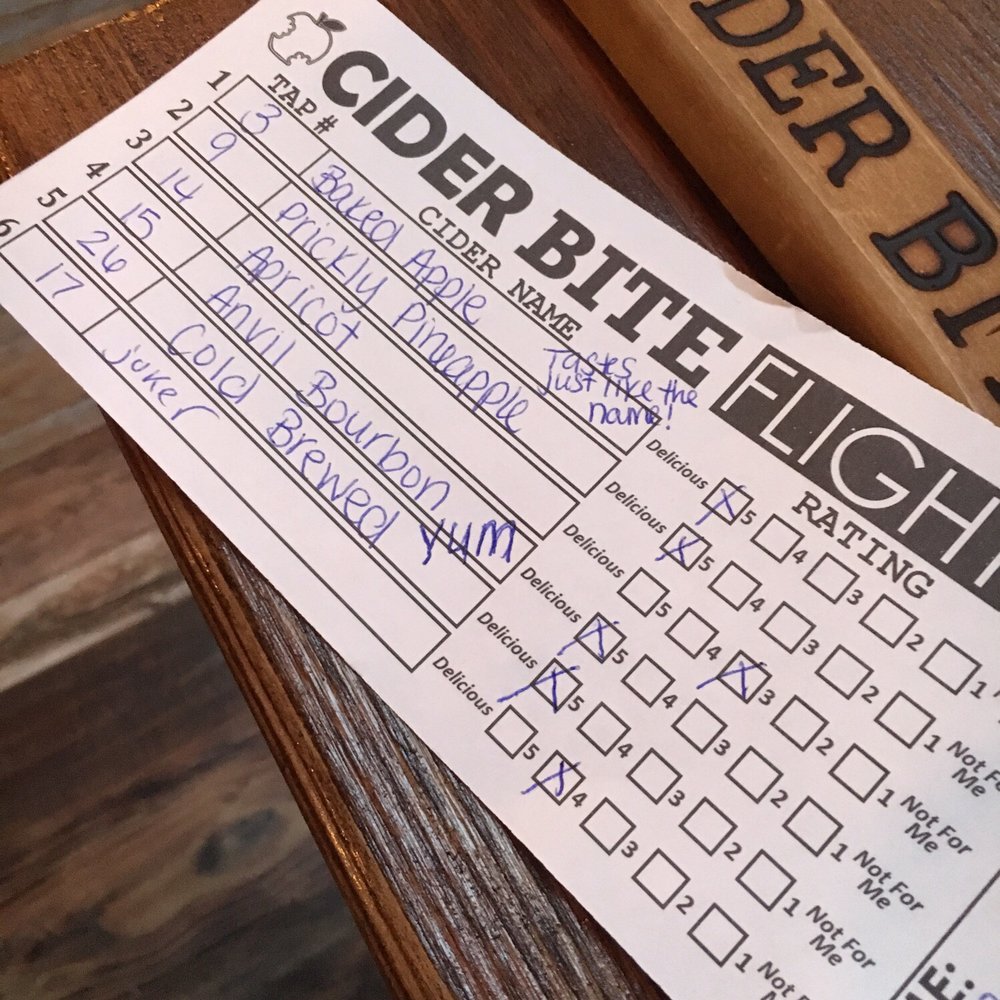 CIDER BITE FLIGH
TAP # CIDER NAME RATING
Tastes
Just like the
name!
1 3 Baked Apple Delicious X 5 4 3 2 1
2 9 Prickly Pineapple Delicious X 5 4 3 2 1 Not For Me
3 14 Apricot Delicious 5 4 X 3 2 1 Not For Me
4 15 Anvil Bourbon YUM Delicious X 5 4 3 2 1 Not For Me
5 26 Cold Brewed Delicious X 5 4 3 2 1 Not For Me
6 17 joker Delicious 5 X 4 3 2 1 Not
DER BIT